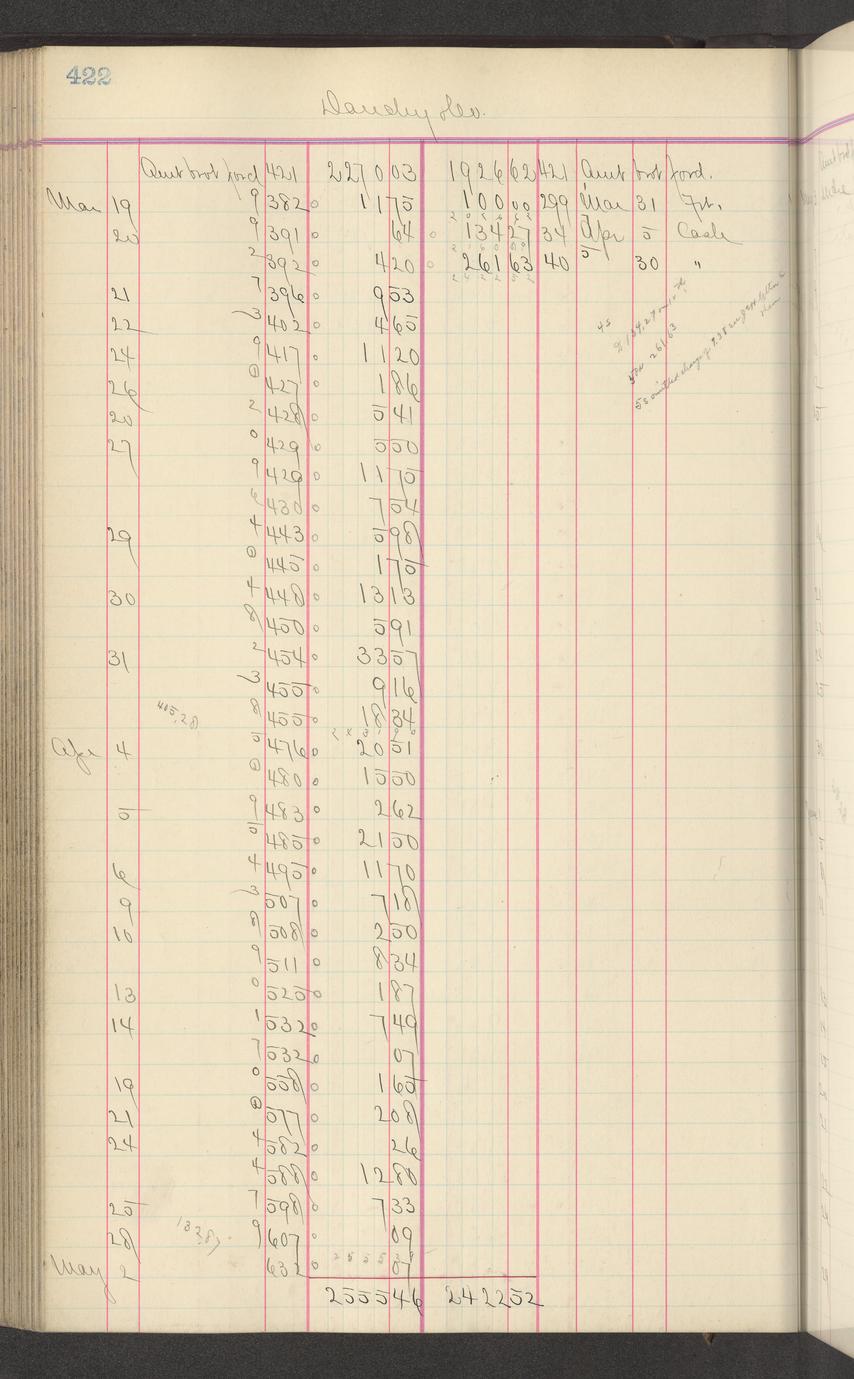 422
Dandry Geo.
Amt brot ford 421 2270 03 1926 62 421 Amt brot ford.
Mar 19 9 382 11 75 100 00 299 Mar 31 Frt.
20 9 391 64 134 27 34 Apr 5 Cash
2 392 4 20 261 63 40 30 "
21 7 396 9 53
22 3 402 4 65
24 9 417 11 20
26 427 1 86
20 2 428 5 41
27 0 429 5 50
9 429 11 75
6 430 7 54
29 4 443 5 98
445 1 75
30 4 448 13 13
8 450 5 91
31 2 454 33 57
3 455 9 16
405.28 8 455 18 34
Apr 4 5 476 20 51
480 15 50
5 9 483 2 62
5 485 21 50
6 4 495 11 70
9 3 507 7 18
10 8 508 2 50
9 511 8 34
13 0 525 1 87
14 1 532 7 49
7 532 07
19 0 558 1 65
21 577 2 08
24 4 582 26
4 588 12 80
25 7 598 7 33
28 9 607 09
May 2 632 07
2555 46 2422 52